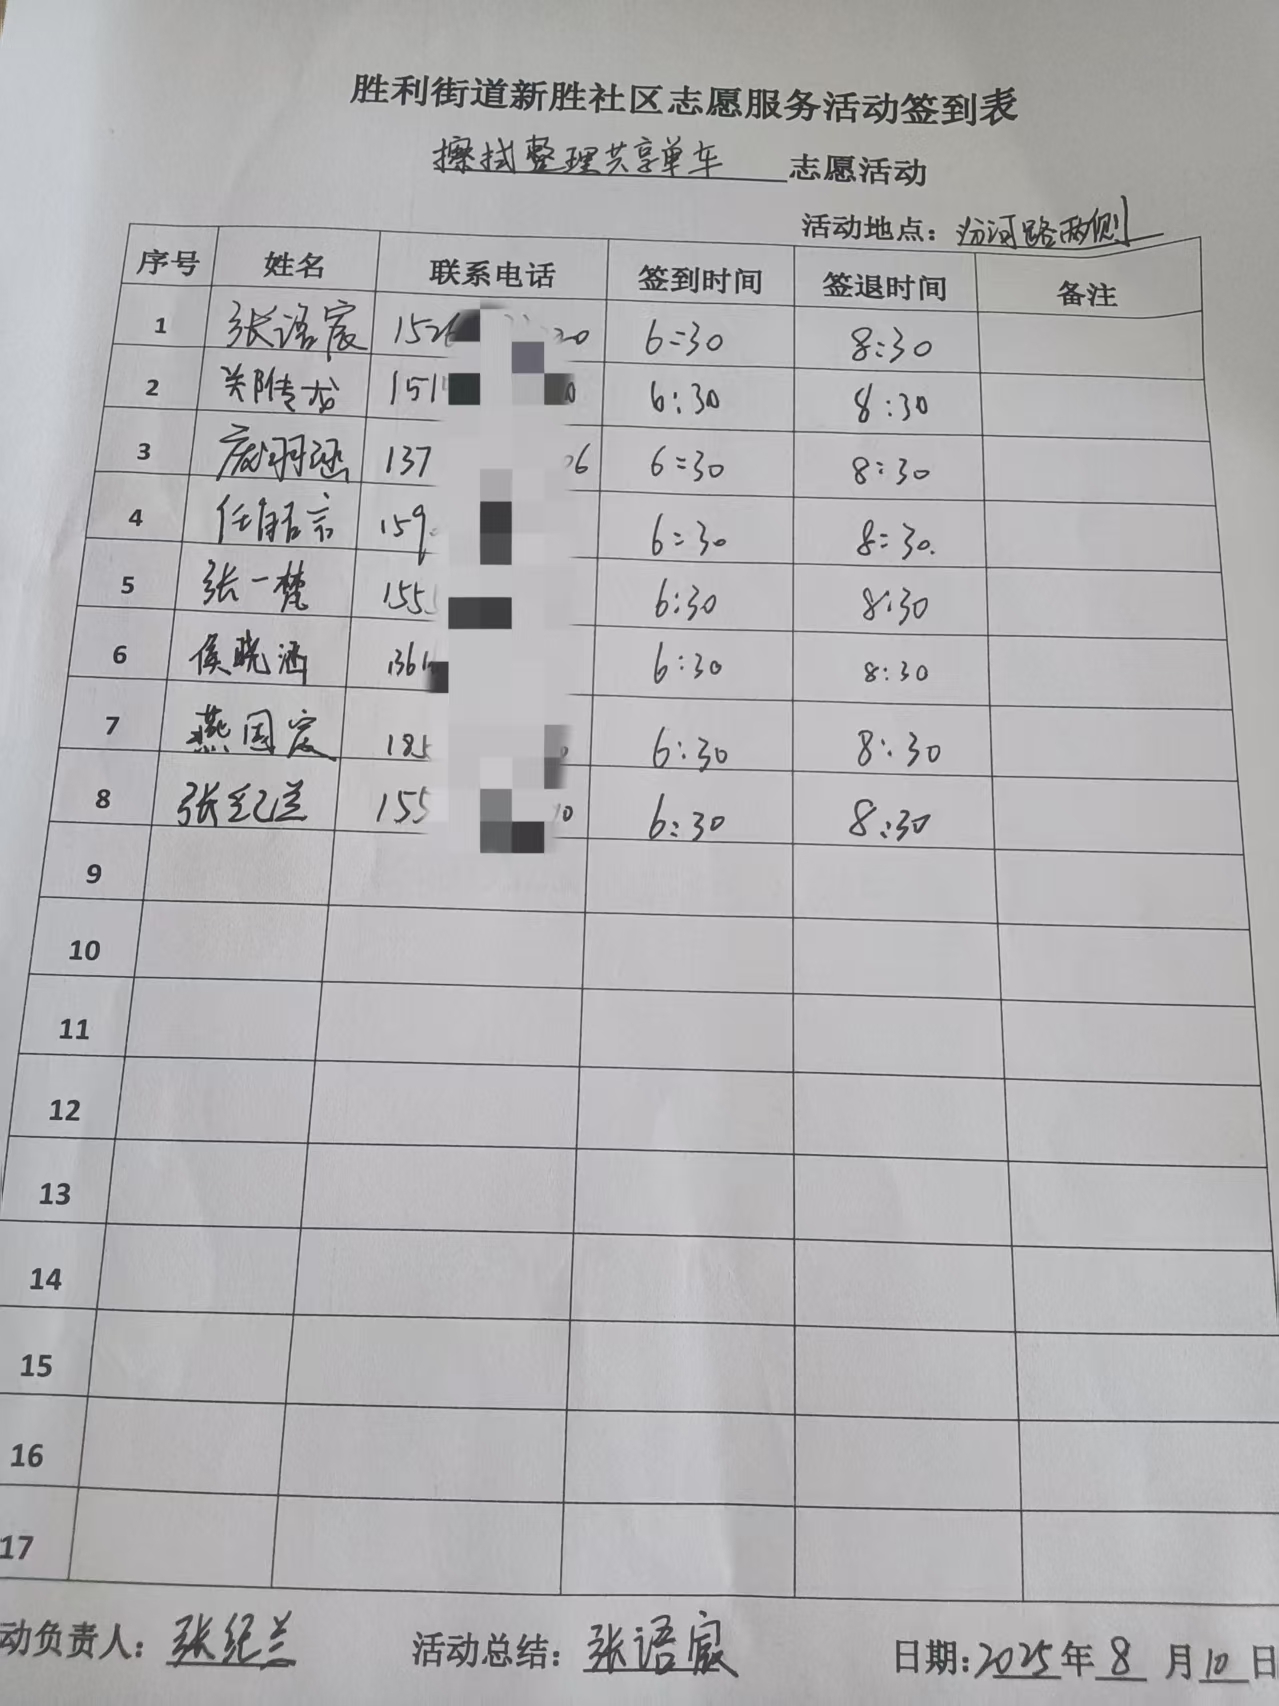 胜利街道新胜社区志愿服务活动签到表
擦拭整理共享单车 志愿活动
活动地点：汾河路两侧
序号 姓名 联系电话 签到时间 签退时间 备注
1 张语宸 152 20 6:30 8:30
2 151 0 6:30 8:30
3 137 06 6:30 8:30
4 任 言 159 6:30 8:30.
5 张一梵 155 6:30 8:30
6 侯晓涵 1361 6:30 8:30
7 燕国宸 185 6:30 8:30
8 张纪兰 155 10 6:30 8:30
9
10
11
12
13
14
15
16
17
动负责人：张纪兰 活动总结：张语宸 日期：2025年8月10日